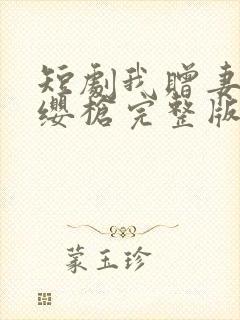 短劇我贈妻
纓槍完整版
蒙玉珍